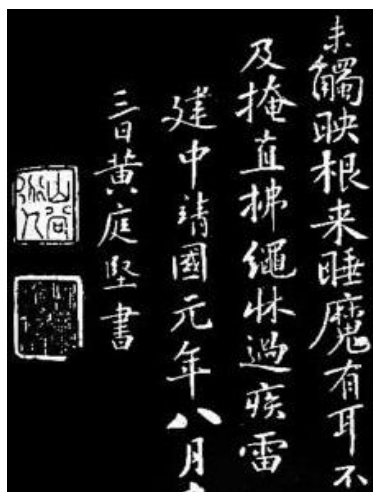 未觸映根来睡魔有耳不
及掩直拂繩牀過疾雷
建中靖國元年八月
三日黃庭堅書
山谷